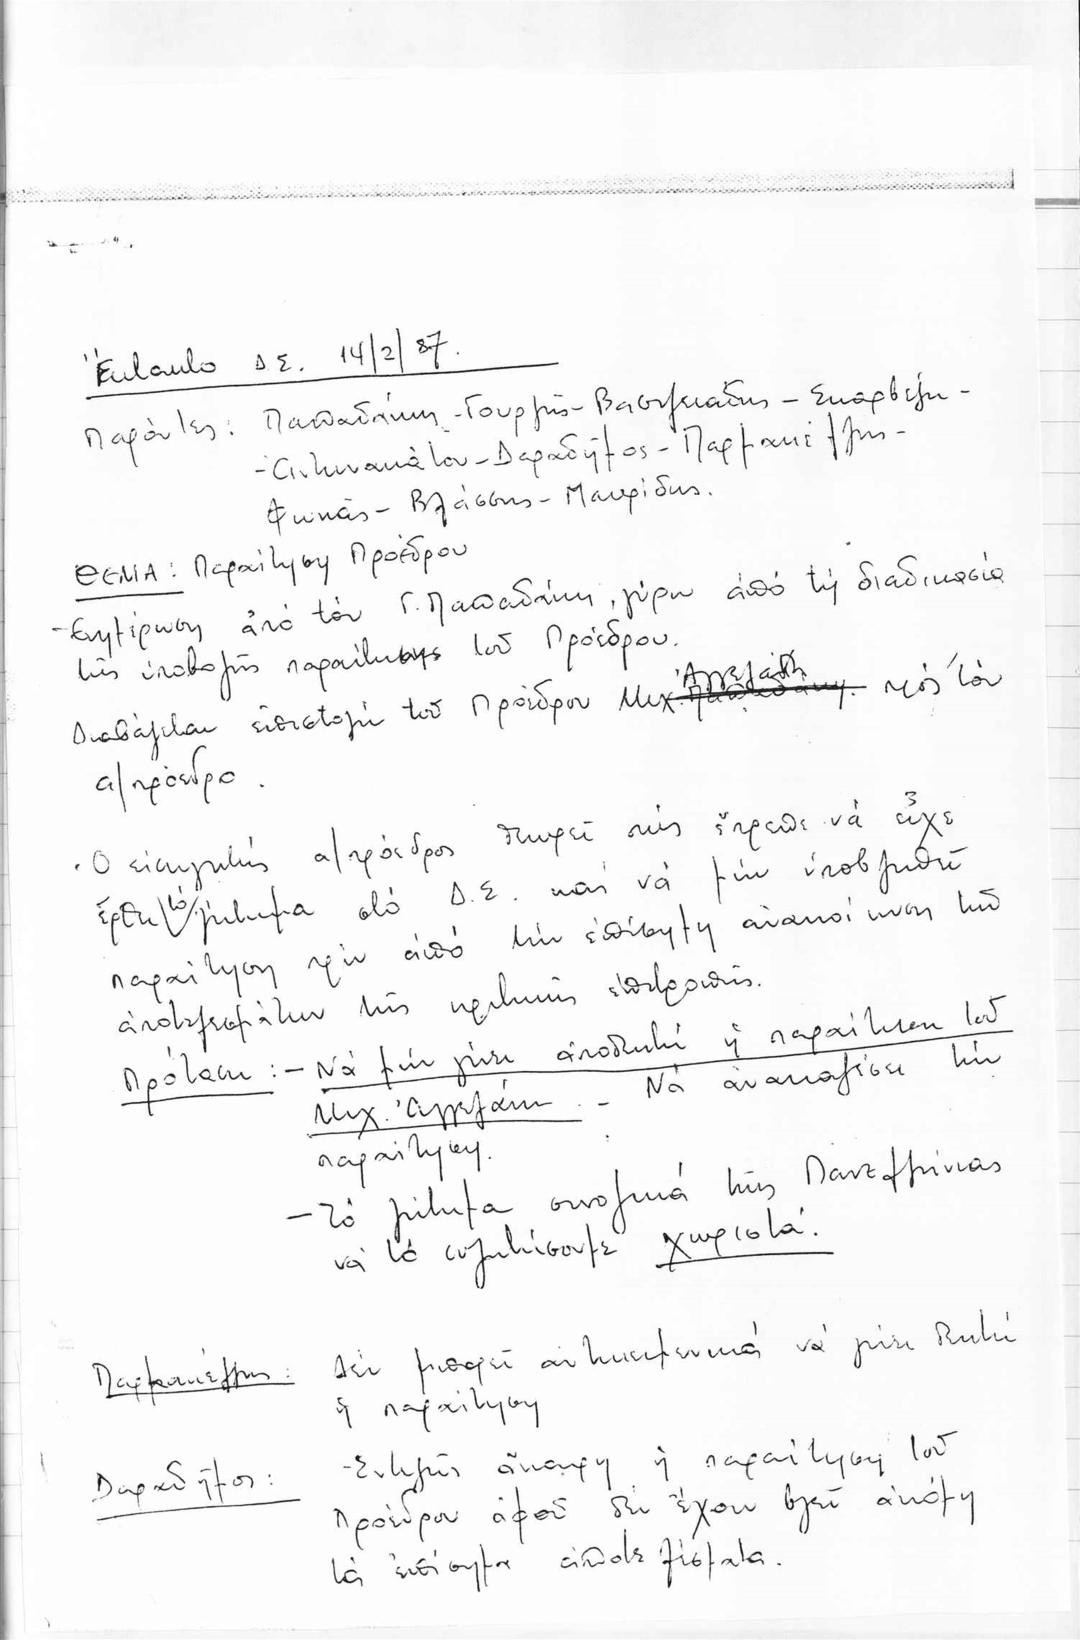 Ἔκτακτο Δ.Σ. 14/2/87.
Παρόντες: Παπαδάκης - Γουρμῆς - Βασιλειάδης - Σκαρβέλη -
- Ἀντωνακάτου - Δαραδῆμος - Παρμακέλλης -
Φωκᾶς - Βλάσσης - Μαυρίδης.
ΘΕΜΑ: Παραίτηση Προέδρου
- Ἐνημέρωση ἀπό τόν Γ. Παπαδάκη, γύρω ἀπό τή διαδικασία
τῆς ὑποβολῆς παραίτησης τοῦ Προέδρου.
Διαβάζεται ἐπιστολή τοῦ Προέδρου Μιχ. Ἀγγελάκη πρός τόν
α/πρόεδρο.
· Ο εἰσηγητής α/πρόεδρος θεωρεῖ πώς ἔπρεπε νά εἶχε
ἔρθει τό ζήτημα στό Δ.Σ. καί νά μήν ὑποβληθεῖ
παραίτηση πρίν ἀπό τήν ἐπίσημη ἀνακοίνωση τῶν
ἀποτελεσμάτων τῆς κριτικῆς ἐπιτροπῆς.
Πρόταση: - Νά μήν γίνει ἀποδεκτή ἡ παραίτηση τοῦ
Μιχ. Ἀγγελάκη. - Νά ἀνακαλέσει τήν
παραίτηση.
- Τό ζήτημα συνολικά τῆς Πανελλήνιας
νά τό συζητήσουμε χωριστά.
Παρμακέλλης: Δέν μπορεῖ ἀντικειμενικά νά γίνει δεκτή
ἡ παραίτηση
Δαραδῆμος: - Ἐντελῶς ἄκαιρη ἡ παραίτηση τοῦ
Προέδρου ἀφοῦ δέν ἔχουν βγεῖ ἀκόμη
τά ἐπίσημα ἀποτελέσματα.